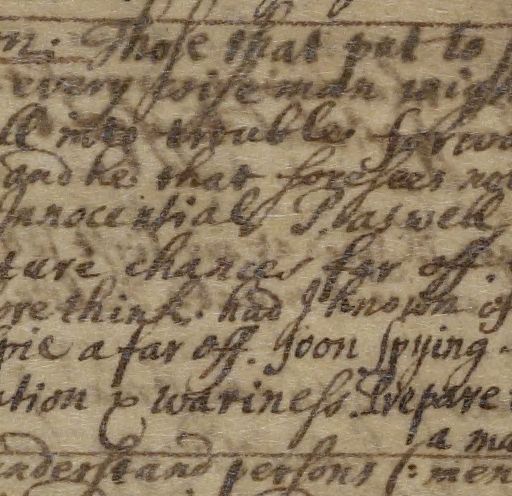 Those that put to
every wise man migh
ll into trouble, forwa
and he that foresees not
nnocentials P. as well
ture chances far off.
ore think. had I known of
pie a far off. soon spying
ution & wariness. Prepare
a ma
understand persons (: men